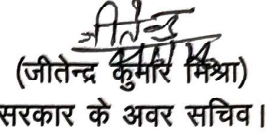 जीतेन्द्र
(जीतेन्द्र कुमार मिश्रा)
सरकार के अवर सचिव।